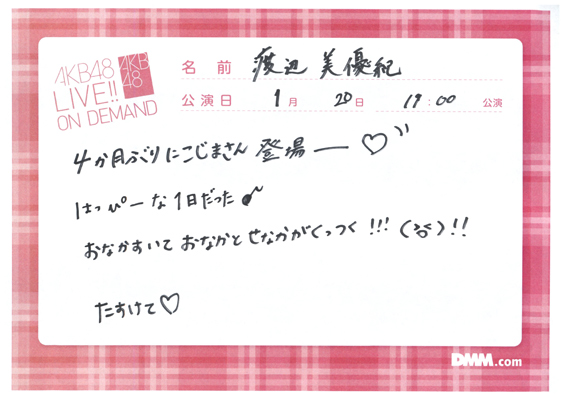 AKB48
LIVE!!
ON DEMAND
AKB
48
名前 渡辺 美優紀
公演日 1月 20日 19:00 公演
4か月ぶりにこじまさん 登場ー♡
はっぴーな1日だった♪
おなかすいて おなかと せなかがくっつく !!! (>3<)!!
たすけて♡
DMM.com